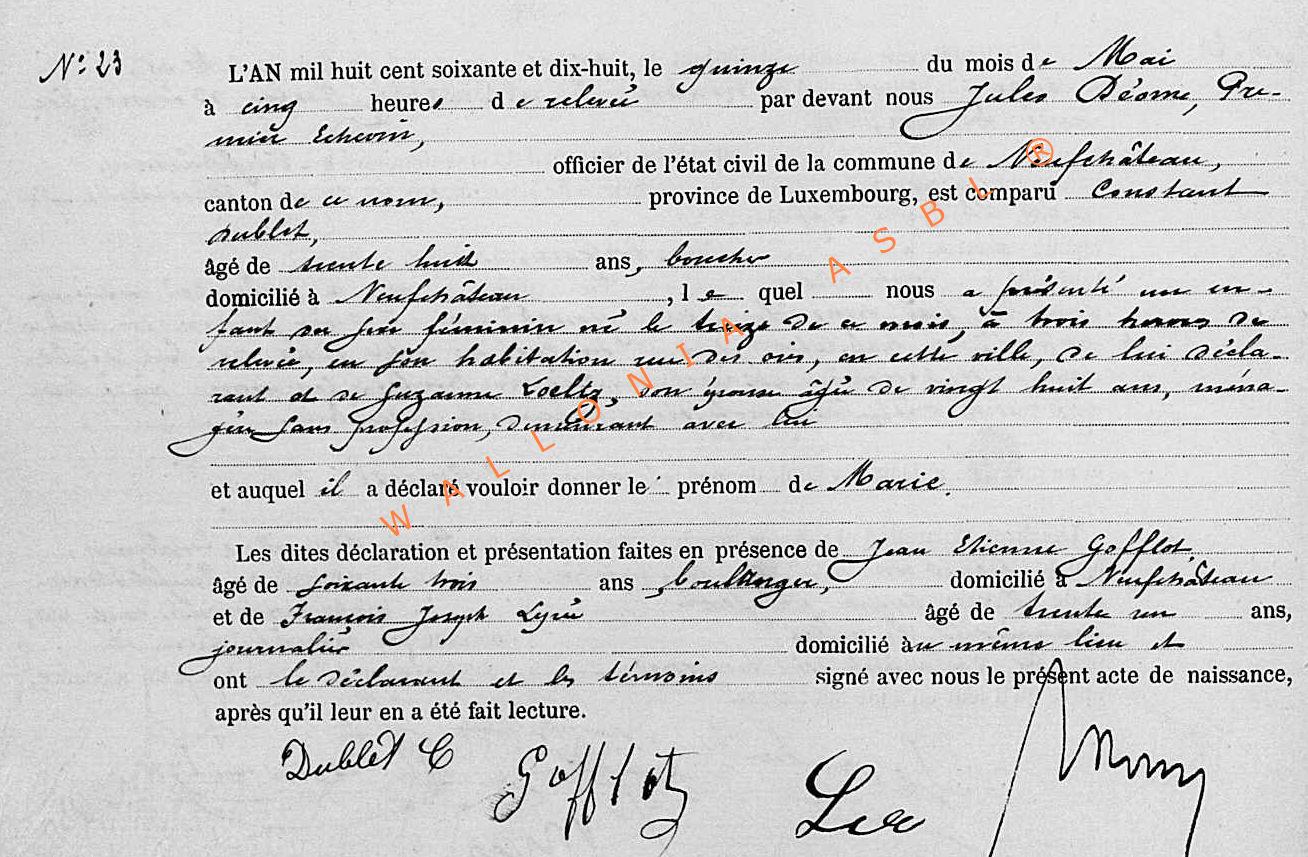 N° 23
L'AN mil huit cent soixante et dix-huit, le quinze du mois de Mai
à cinq heures de relevée par devant nous Jules Déome, Pre-
mier Echevin,
officier de l'état civil de la commune de Neufchâteau,
canton de ce nom, province de Luxembourg, est comparu Constant
Dublet,
âgé de trente huit ans, boucher
domicilié à Neufchâteau, le quel nous a présenté un en-
fant du sexe féminin né le treize de ce mois, à trois heures de
relevée, en son habitation rue des oies, en cette ville, de lui décla-
rant et de Suzanne Loeltz, son épouse âgée de vingt huit ans, ména-
gère sans profession, demeurant avec lui
et auquel il a déclaré vouloir donner le prénom de Marie.
Les dites déclaration et présentation faites en présence de Jean Etienne Gofflot,
âgé de soixante trois ans boulanger, domicilié à Neufchâteau
et de François Joseph âgé de trente un ans,
journalier domicilié au même lieu et
ont le déclarant et les témoins signé avec nous le présent acte de naissance,
après qu'il leur en a été fait lecture.
Dublet C Gofflot
WALLONIA ASBL ®